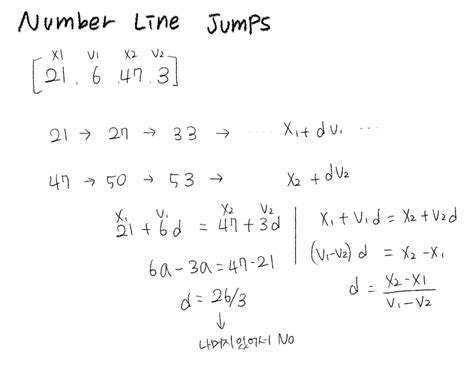 Number Line Jumps
x1 v1 x2 v2
[21 . 6 .47. 3]
21 → 27 → 33 → ... x₁+dv₁ ...
47 → 50 → 53 → x₂ + dv₂
x₁ v₁ x₂ v₂
21 + 6d = 47 + 3d
6d - 3d = 47 - 21
d = 26/3
↓
나머지있어서 No
x₁ + v₁d = x₂ + v₂d
(v₁-v₂) d = x₂ - x₁
d = x₂-x1 / v₁-v₂